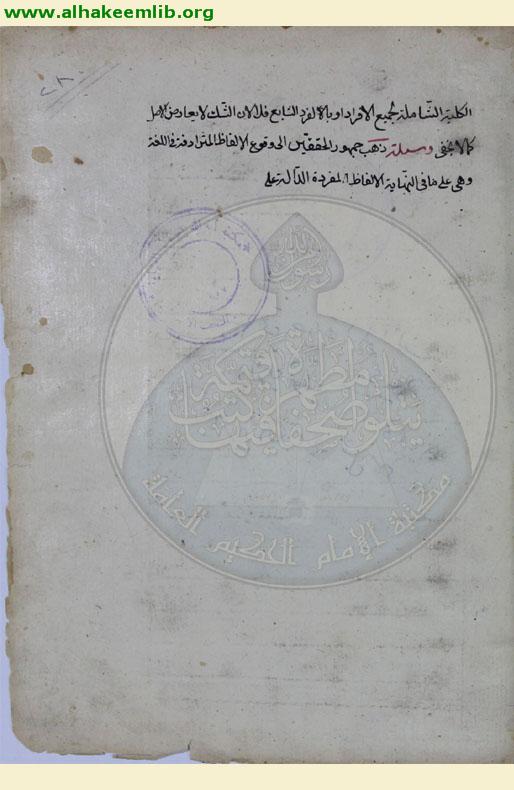 www.alhakeemlib.org
الكلية الشاملة لجميع الافراد او بالا لفرد الشايع فلا لان الشك لا يعارض الاصل
كما لا يخفى وسيلة ذهب جمهور المحققين الى وقوع الالفاظ المترادفة فى اللغة
وهى على ما فى النهاية الالفاظ المفردة الدالة على
رسول الله
يتلو صحفا مطهرة فيها كتب قيمة
مكتبة الإمام الحكيم العامة